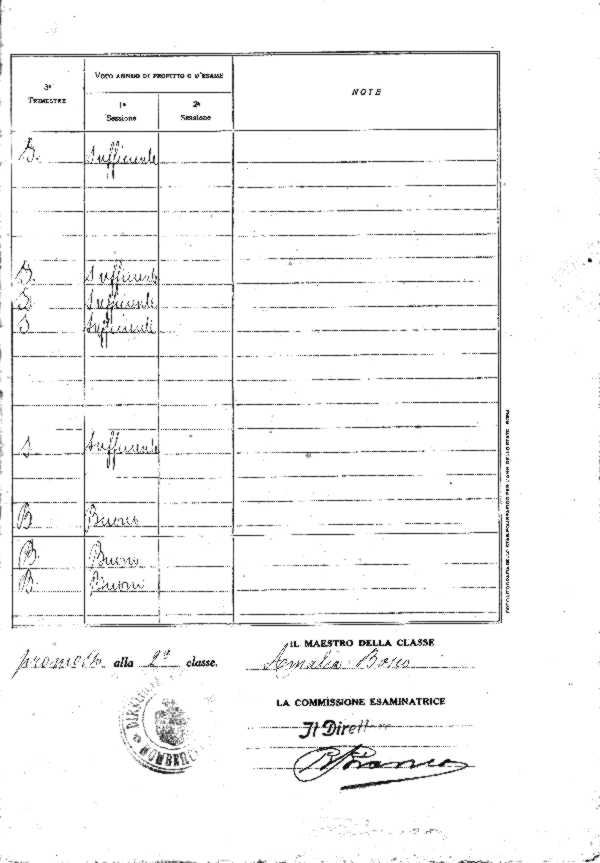 3º TRIMESTRE
VOTO ANNUO DI PROFITTO O D'ESAME
1ª Sessione
2ª Sessione
NOTE
S. Sufficiente
S. Sufficiente
S Sufficiente
S Sufficienti
S Sufficiente
B Buono
B. Buono
B. Buono
IL MAESTRO DELLA CLASSE
promosso alla 2ª classe.
Amalia Bosco
LA COMMISSIONE ESAMINATRICE
Il Direttore